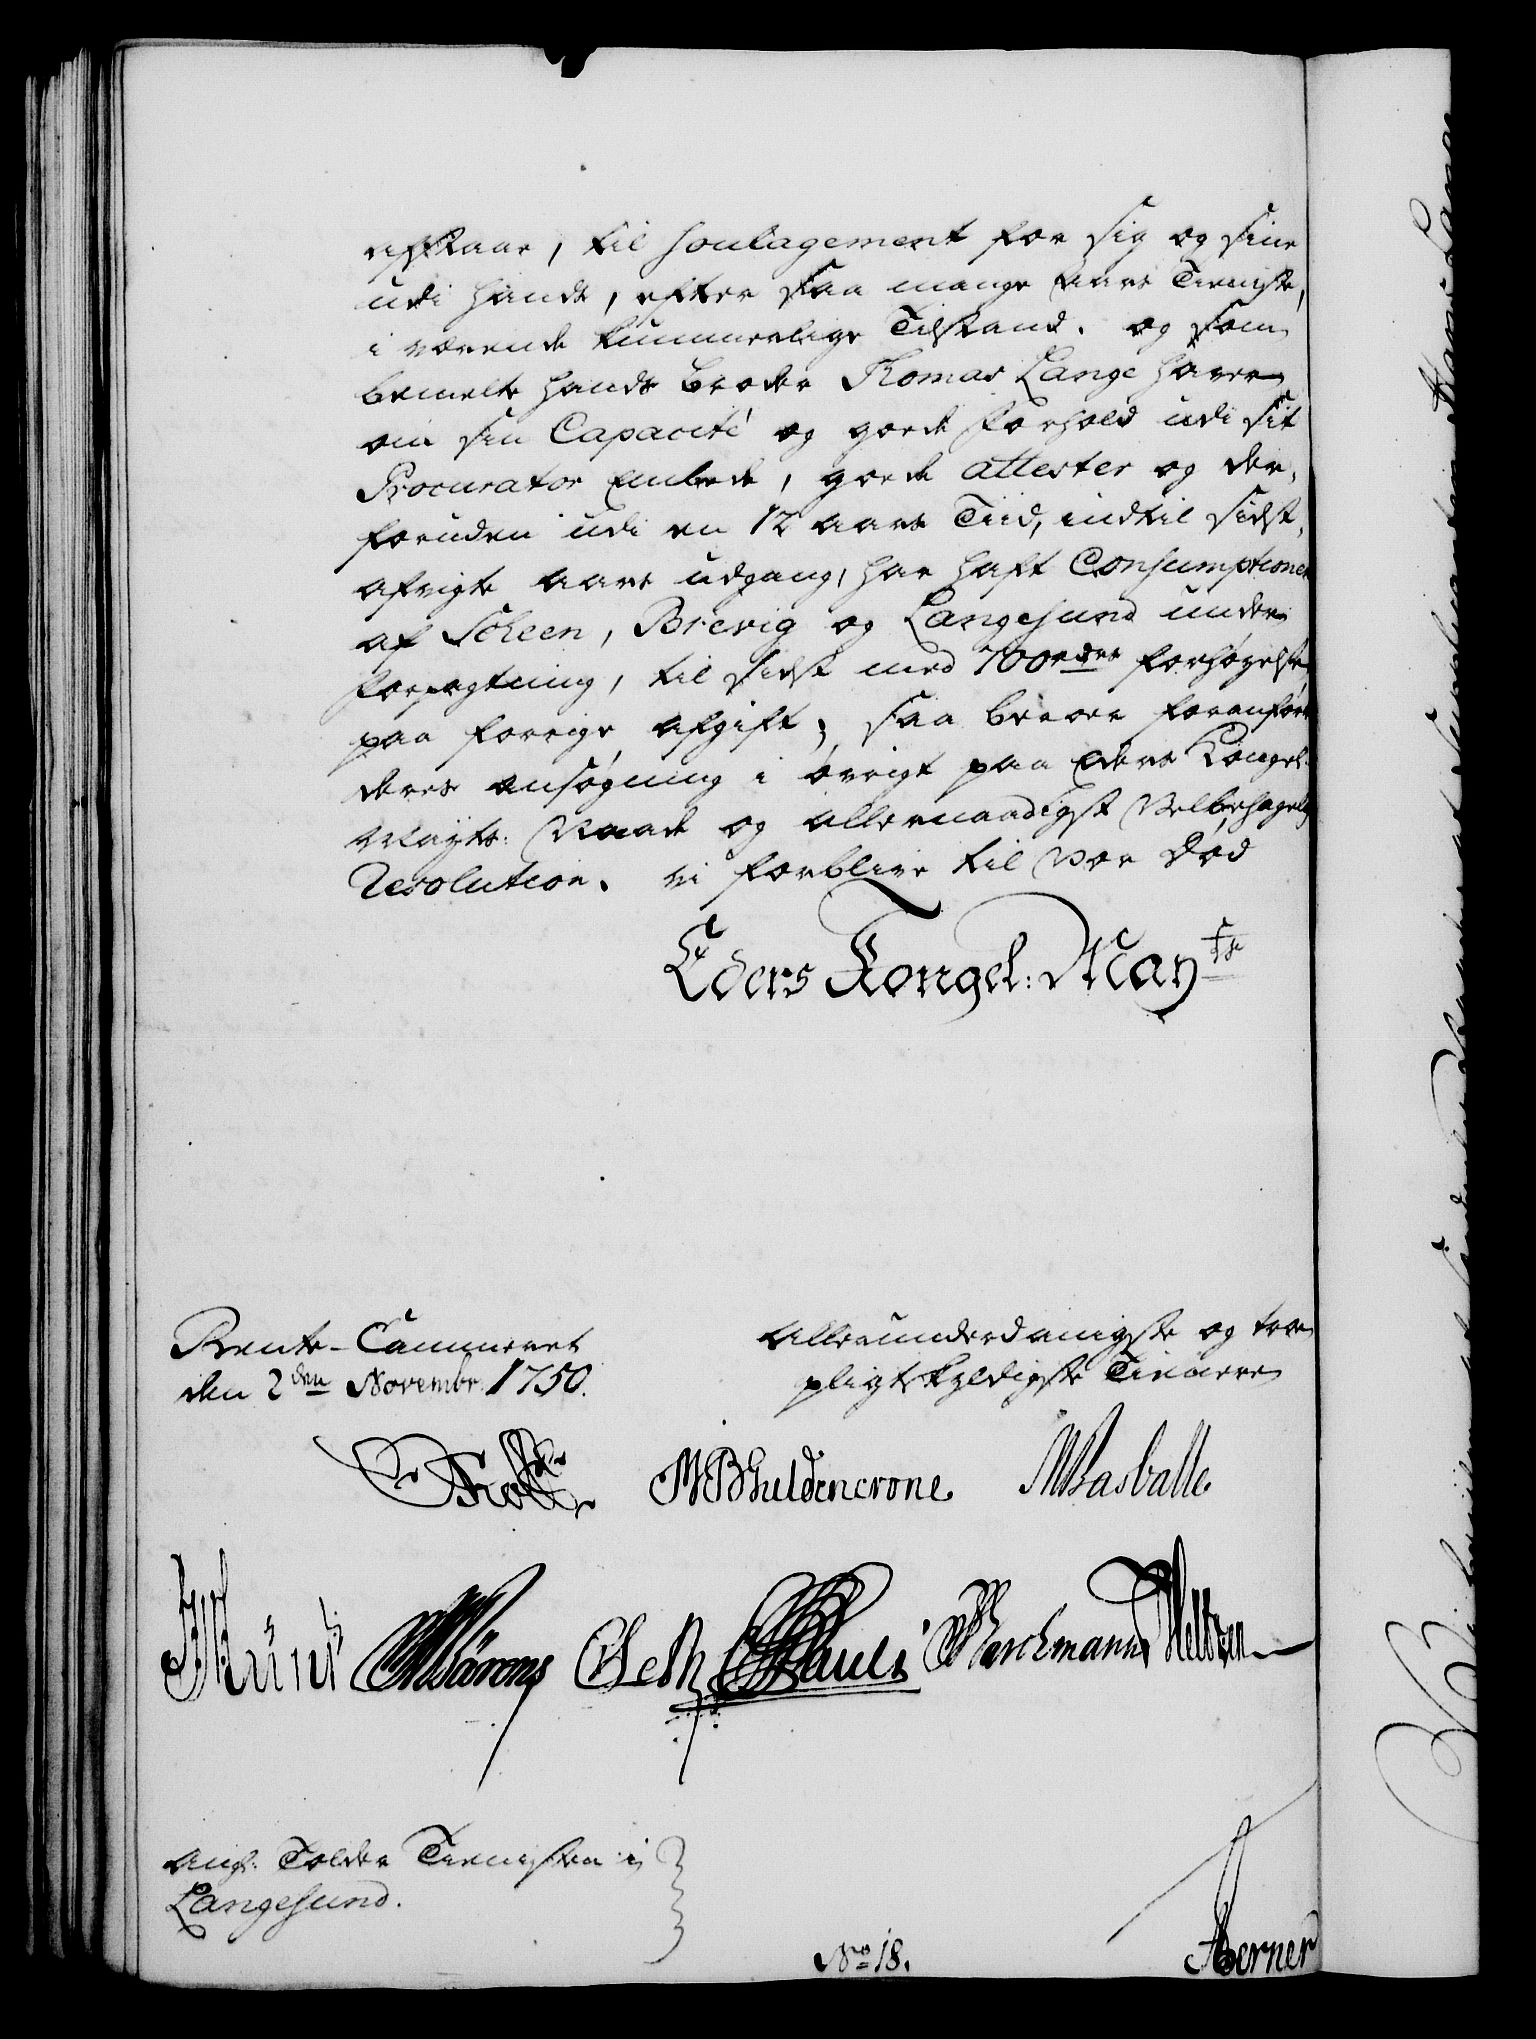 afstaae, til Soulagement for sig og sine
udi hands, efter saa mange Aars Tieniste,
i værende kummerlige Tilstand. og som
bemelte hands Broder Thomas Lange haver
om sin Capacité og goede Forhold udi sit
Procurator Embede, goede attester og der-
foruden udi en 12 aars Tiid, indtil sidst-
afvigte Aars udgang, har haft Consumptionen
af Scheen, Brevig og Langesund under
Forpagtning, til sidst med 700rdrs forhøyelse
paa forrige afgift; saa beroer foranførte
deres ansøgning i øvrigt paa Eders Kongel:
Mayts: Naade og allernaadigst Velbehagelig
Resolution. Vi forblive til vor Død
Eders Kongel: Mayts
Rente-Cammeret
den 2den Novembr. 1750.
Allerunderdanigste og troe
pligtskyldigste Tienere
MBGuldencrone Rasballe
Pauli
Ang: Tolder Tienisten i
Langesund.
No 18.